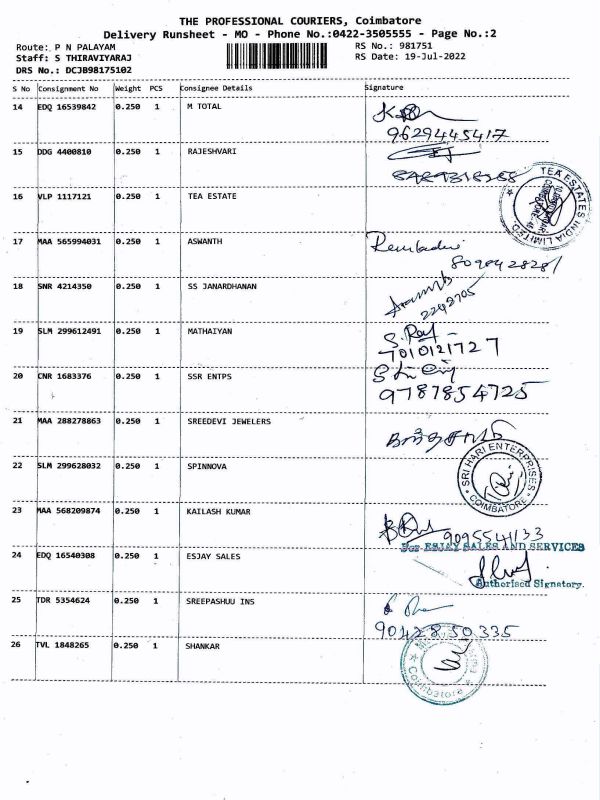 THE PROFESSIONAL COURIERS, Coimbatore
Delivery Runsheet - MO - Phone No.:0422-3505555 - Page No.:2
Route: P N PALAYAM RS No.: 981751
Staff: S THIRAVIYARAJ RS Date: 19-Jul-2022
DRS No.: DCJB98175102
S No Consignment No Weight PCS Consignee Details Signature
14 EDQ 16539842 0.250 1 M TOTAL
9629445417
15 DDG 4400810 0.250 1 RAJESHVARI
16 VLP 1117121 0.250 1 TEA ESTATE
TEA ESTATES INDIA LIMITED.
17 MAA 565994031 0.250 1 ASWANTH
18 SNR 4214350 0.250 1 SS JANARDHANAN
2242705
19 SLM 299612491 0.250 1 MATHAIYAN
S. Raj
7010121727
20 CNR 1683376 0.250 1 SSR ENTPS
9787854725
21 MAA 288278863 0.250 1 SREEDEVI JEWELERS
22 SLM 299628032 0.250 1 SPINNOVA
SRI HARI ENTERPRISES
COIMBATORE
23 MAA 568209874 0.250 1 KAILASH KUMAR
9095541133
24 EDQ 16540308 0.250 1 ESJAY SALES
For ESJAY SALES AND SERVICES
Authorised Signatory.
25 TDR 5354624 0.250 1 SREEPASHUU INS
9042850335
26 TVL 1848265 0.250 1 SHANKAR
Coimbatore